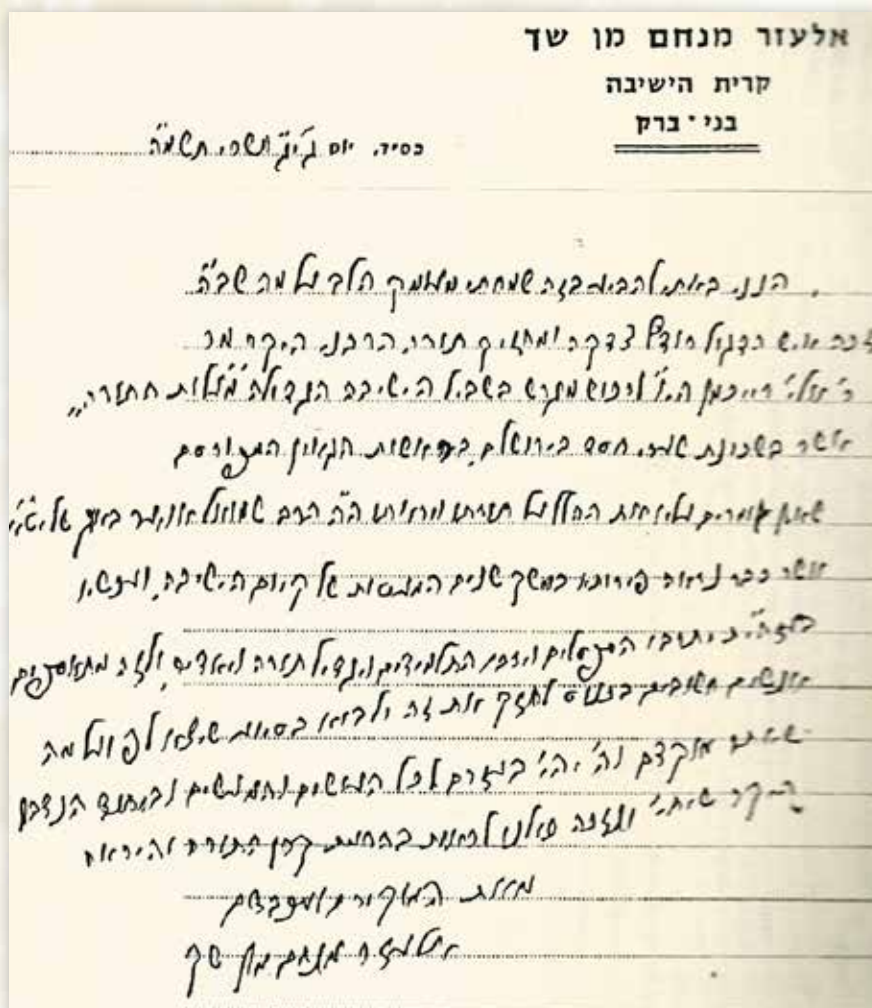 אלעזר מנחם מן שך
קרית הישיבה
בני-ברק
בס״ד, יום ג׳ י״ג תשרי תשמ״ה
הנני באתי להביע בזה שמחתי מעומק הלב על מה שב״ה
זכה איש הדגול רודף צדקה ומחזיק תורה הרבני היקר מר
ר׳ אלי׳ רייכמן הי״ו לרכוש מגרש בשביל הישיבה הגדולה ״מעלות התורה״
אשר בשכונת שערי חסד בירושלים, בראשות הגאון המפורסם
שאין אומרים עליו זולת ההלל על תורתו ויראתו ה״ה הרב שמואל אויערבאך שליט״א
אשר כבר נראה פירותיו במשך שנים המעטות של קיום הישיבה, ועכשיו
בעזהי״ת יתרבו הספסלים ויתרבו התלמידים ויגדיל תורה ויאדיר, ולזה מתאספים
אנשים חשובים בכנוס לחזק את זה ולהביא בסיוע שיצא לפועל מה
מוקדם וה׳ יהי׳ בעזרם לכל העושים והמעשים ובייחוד הנדבן
היקר שיחי׳ ונזכה כולנו לראות בהרמת קרן התורה והיראה
מאת המוקירו ומכבדם
אלעזר מנחם מן שך